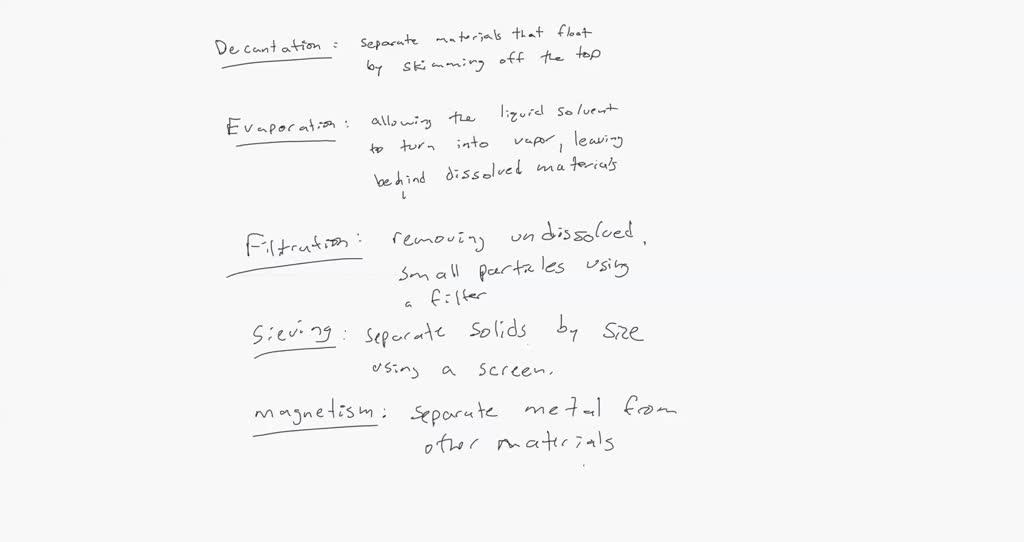 Decantation : separate materials that float
by skimming off the top
Evaporation : allowing the liquid solvent
to turn into vapor, leaving
behind dissolved materials
Filtration : removing undissolved,
small particles using
a filter
Sieving : separate solids by size
using a screen.
magnetism : separate metal from
other materials